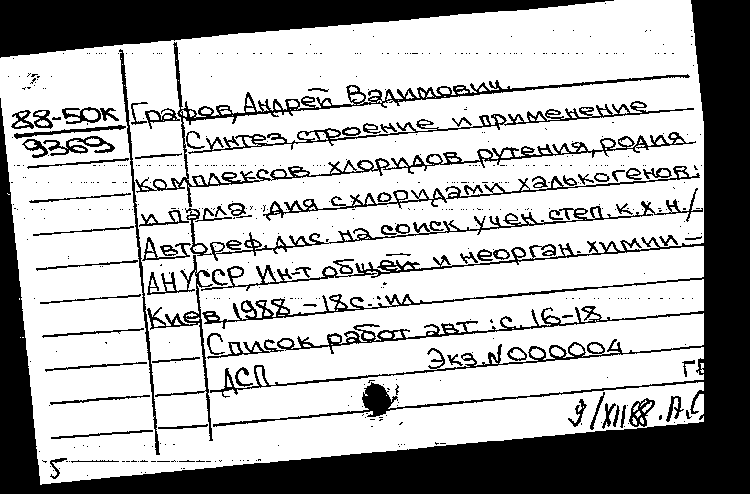 88-50к
9369
Графов, Андрей Вадимович.
Синтез, строение и применение
комплексов хлоридов рутения, родия
и палладия с хлоридами халькогенов:
Автореф. дис. на соиск. учен. степ. к.х.н./
АН УССР, Ин-т общей и неорган. химии.—
Киев, 1988.-18с.:ил.
Список работ авт.: с. 16-18.
ДСП. Экз. N 000004.
9/XII 88. А.С.
5